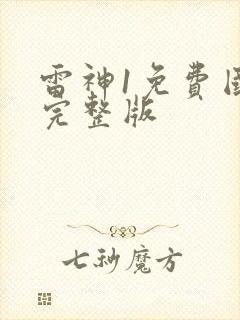 雷神1免費
完整版
七秒魔方